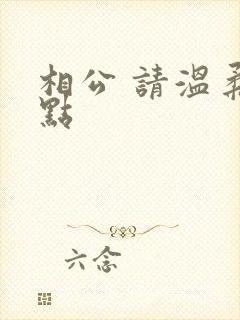 相公 請溫柔
點
六念